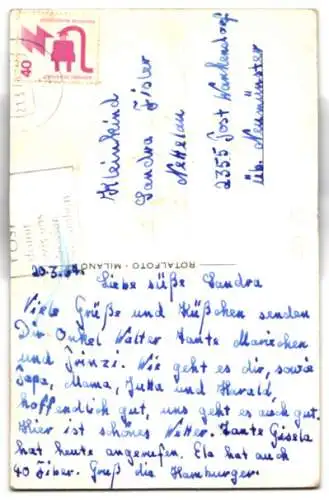 40
Kleinkind
Sandra Fisler
Nettelau
2355 Post Wankendorf
üb. Neumünster
ROTALFOTO - MILANO
Liebe süße Sandra
Viele Grüße und Küßchen senden
Dir Onkel Walter Tante Mariechen
und Trinzi. Wie geht es dir, sowie
Papa, Mama, Jutta und Harald,
hoffendlich gut, uns geht es auch gut.
Hier ist schönes Wetter. Tante Gisela
hat heute angerufen. Ela hat auch
40 Fiber. Gruß die Hamburger.